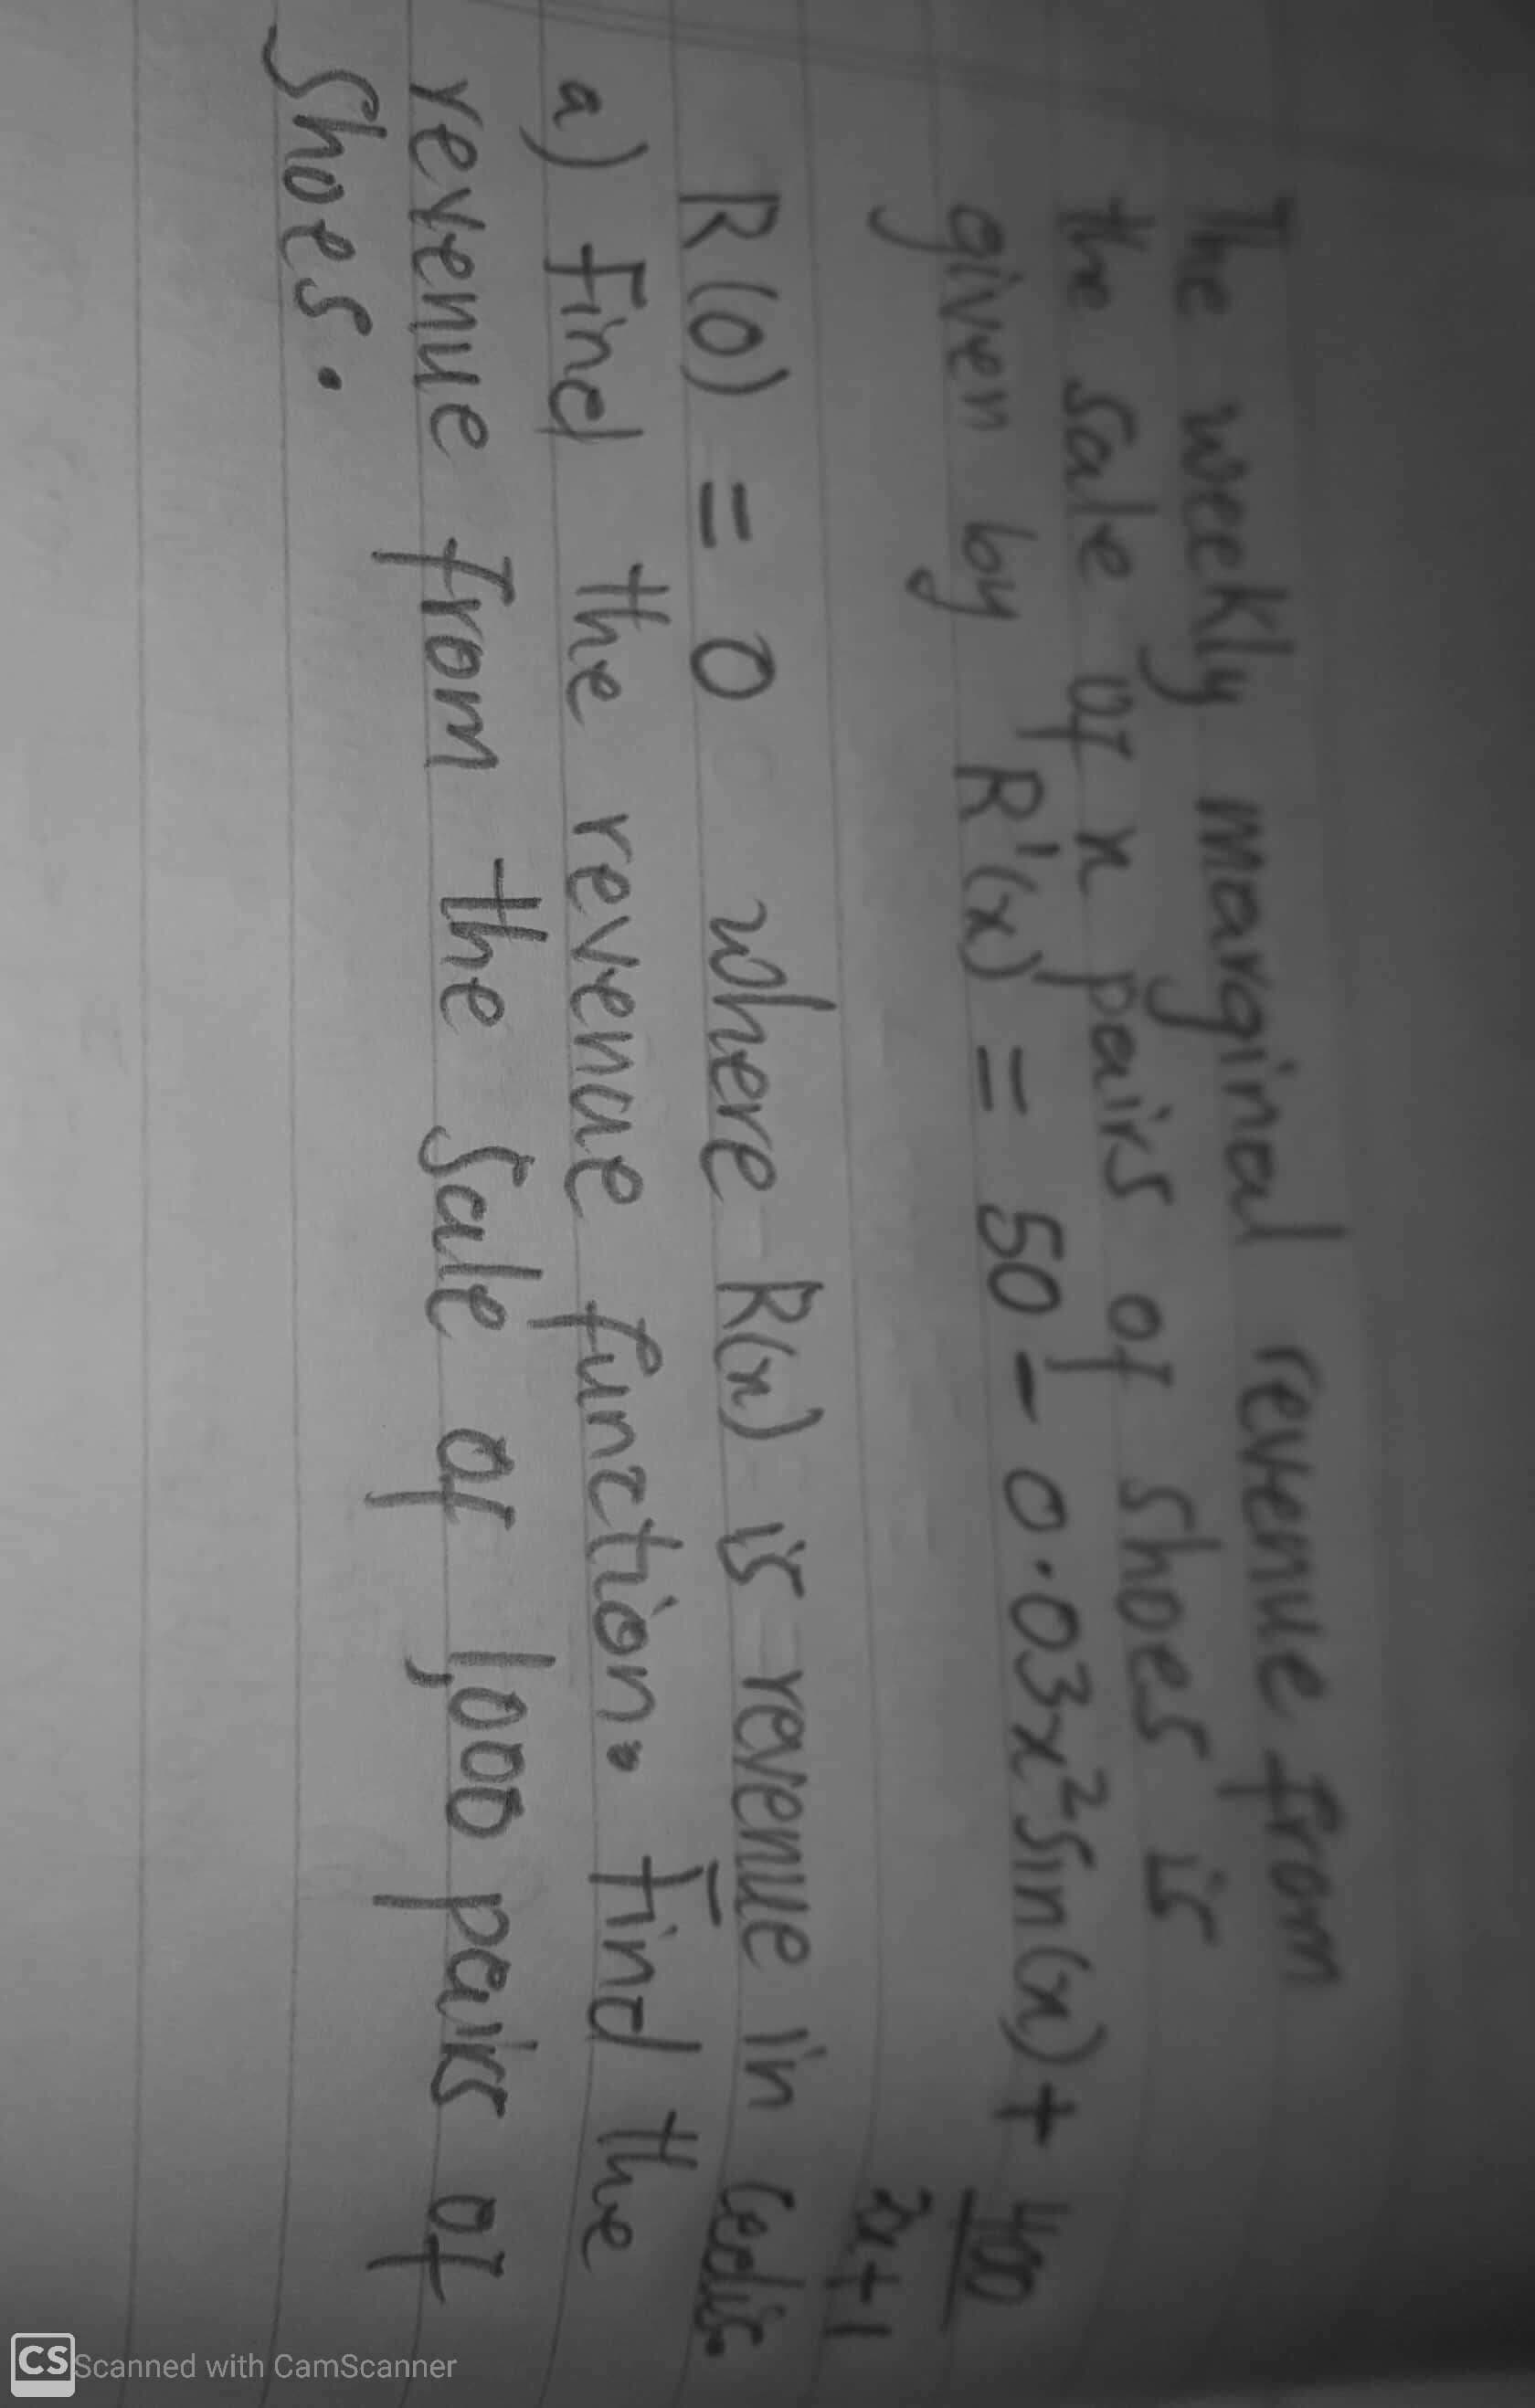 The weekly marginal revenue from
the sale of x pairs of shoes is
given by R'(x) = 50 - 0.03x²sin(x) + 400
x+1
R(0) = 0 where R(x) is revenue in Cedis.
a) Find the revenue function. Find the
revenue from the sale of 1,000 pairs of
shoes.
CS Scanned with CamScanner